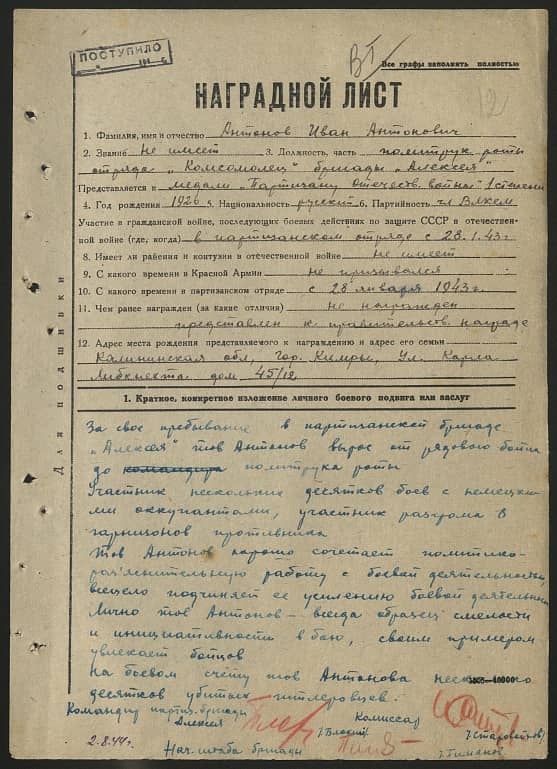 ПОСТУПИЛО
Все графы заполнить полностью
12
НАГРАДНОЙ ЛИСТ
1. Фамилия, имя и отчество Антонов Иван Антонович
2. Звание не имеет 3. Должность, часть политрук роты
отряда „Комсомолец" бригады „Алексея"
Представляется к медали „Партизану отечеств. войны" 1 степени
4. Год рождения 1926 г. Национальность русский 6. Партийность чл ВЛКСМ
Участие в гражданской войне, последующих боевых действиях по защите СССР и отечествен-
ной войне (где, когда) в партизанском отряде с 28.1.43 г.
8. Имеет ли ранения и контузии в отечественной войне не имеет
9. С какого времени в Красной Армии не призывался
10. С какого времени в партизанском отряде с 28 января 1943 г.
11. Чем ранее награжден (за какие отличия) не награжден
представлен к правительств. награде
12. Адрес места рождения представляемого к награждению и адрес его семьи
Калининская обл, гор. Кимры, ул. Карла
Либкнехта дом 45/12
Для подшивки
1. Краткое, конкретное изложение личного боевого подвига или заслуг
За свое пребывание в партизанской бригаде
„Алексея" тов Антонов вырос от рядового бойца
до командира политрука роты
Участник несколько десятков боев с немецки-
ми оккупантами, участник разгрома 8
гарнизонов противника
Тов Антонов хорошо сочетает политико-
раз'яснительную работу с боевой деятельностью,
всецело подчиняет ее усилению боевой деятельности
Лично тов Антонов – всегда образец смелости
и инициативности в бою, своим примером
увлекает бойцов
На боевом счету тов Антонова несколько
десятков убитых гитлеровцев.
Командир партиз. бригады Комиссар
Алексея
2.8.44 г. Нач. штаба бригады